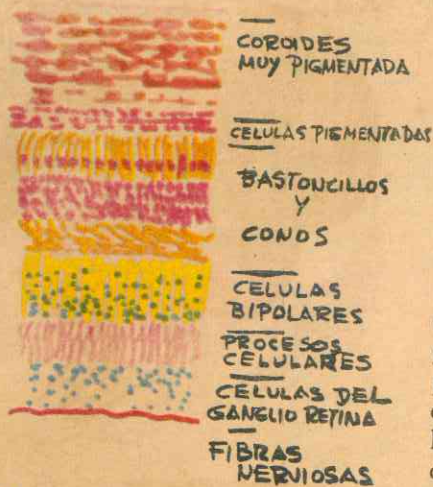 COROIDES
MUY PIGMENTADA
CELULAS PIGMENTADAS
BASTONCILLOS
Y
CONOS
CELULAS
BIPOLARES
PROCESOS
CELULARES
CELULAS DEL
GANGLIO RETINA
FIBRAS
NERVIOSAS